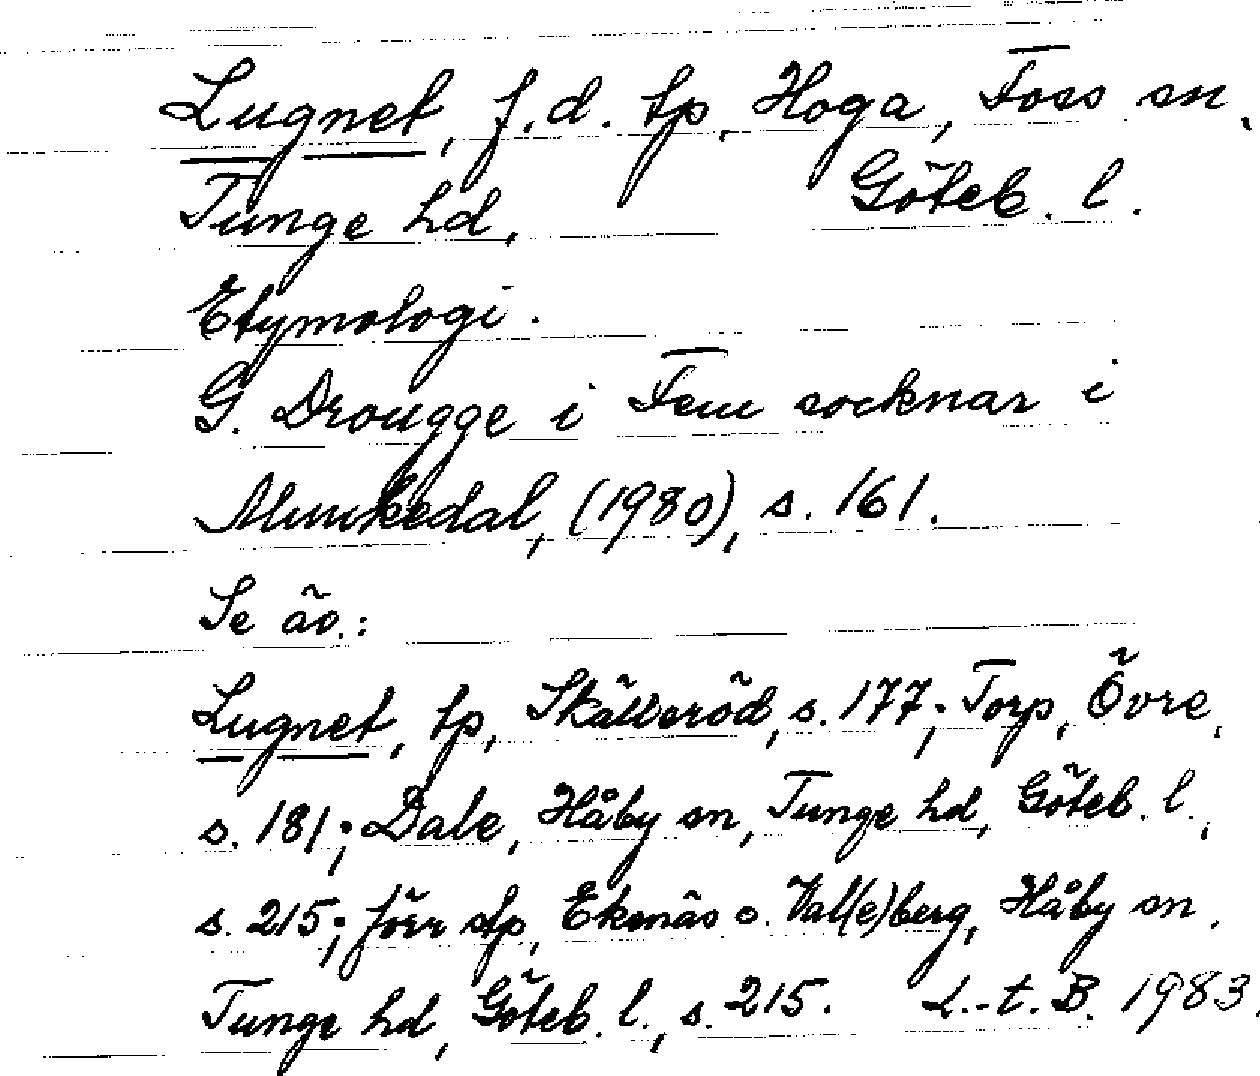 Lugnet, f.d. tp, Hoga, Foss sn,
Tunge hd, Göteb. l.
Etymologi.
G. Drougge i Fem socknar i
Munkedal, (1980), s. 161.
Se äv.:
Lugnet, tp, Skälleröd, s. 177; Torp, Övre,
s. 181; Dale, Håby sn, Tunge hd, Göteb. l.,
s. 215; förr stp, Ekenäs o. Val(e)berg, Håby sn,
Tunge hd, Göteb. l., s. 215. L.-t. B. 1983.